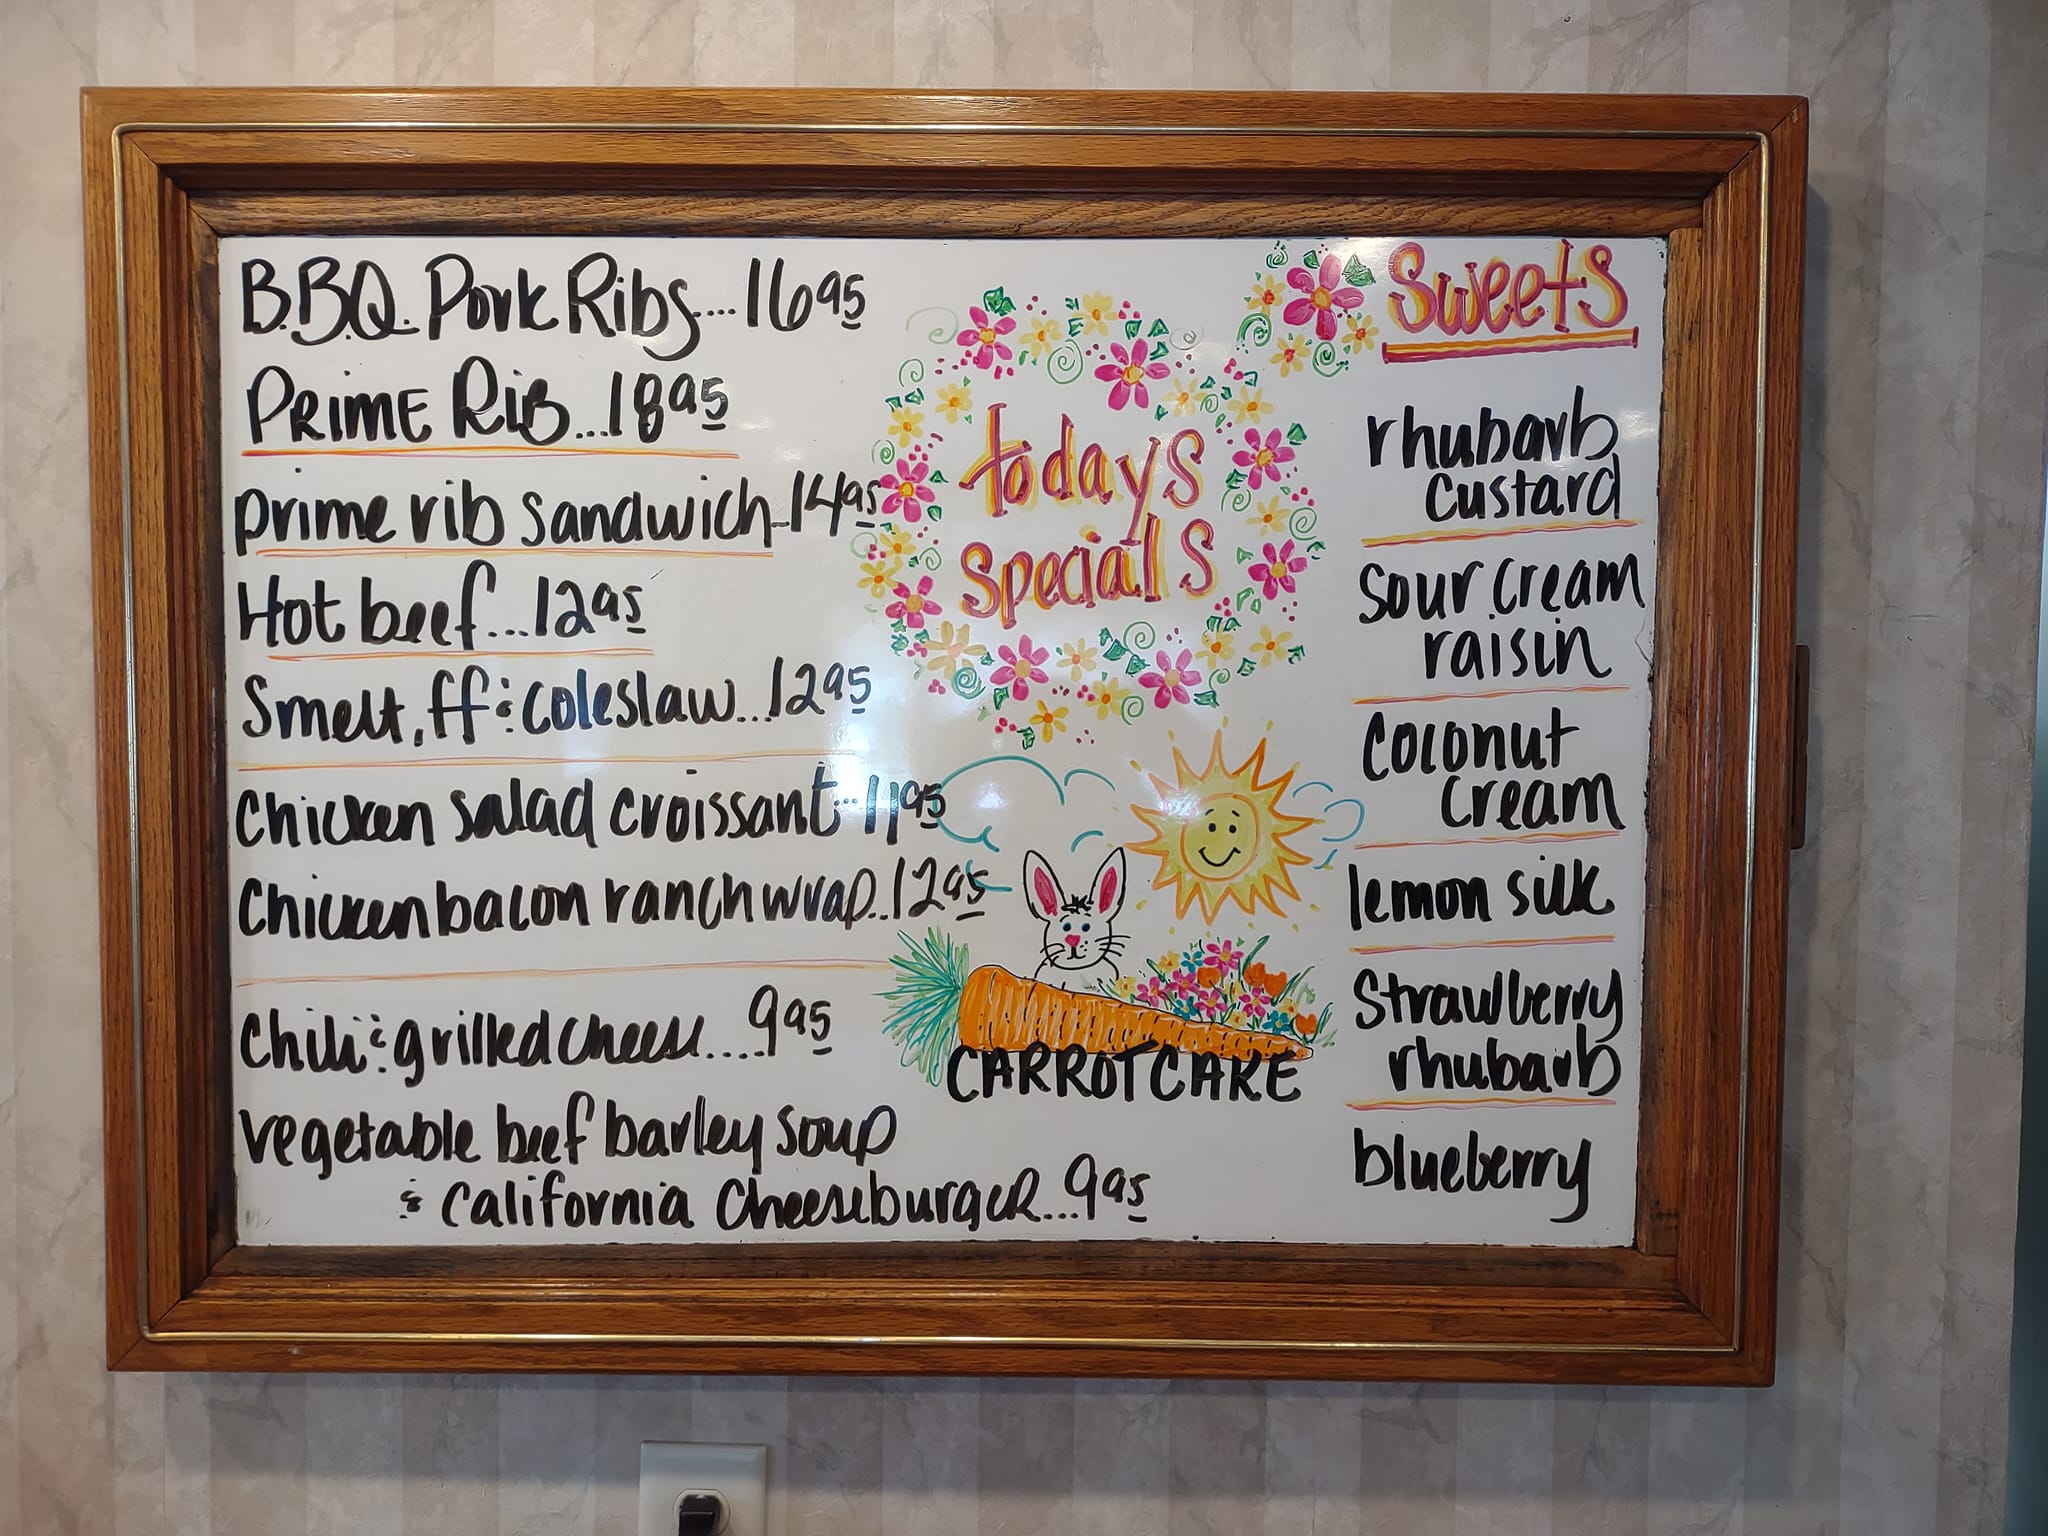 B.B.Q. Pork Ribs...16 95
PRIME RIB...18 95
prime rib sandwich...14 95
Hot beef...12 95
Smelt, ff & coleslaw...12 95
Chicken salad croissant...11 95
Chicken bacon ranch wrap...12 95
Chili & grilled cheese....9 95
vegetable beef barley soup
& California Cheeseburger...9 95
todays
specials
CARROT CAKE
Sweets
rhubarb
custard
sour cream
raisin
coconut
cream
lemon silk
Strawberry
rhubarb
blueberry